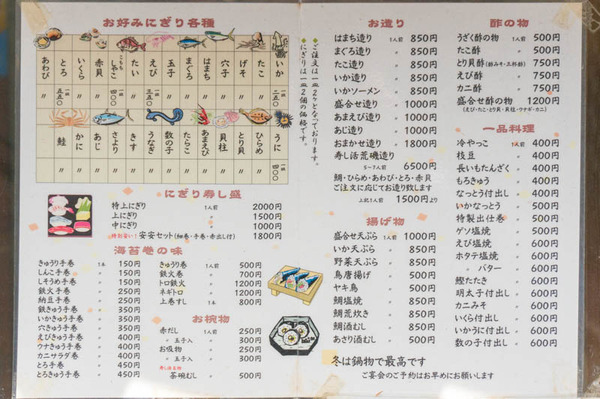 お好みにぎり各種
いか
たこ
げそ
穴子
はまち
まぐろ
玉子
えび
たい
しゃこ
赤貝
いくら
とろ
あわび
うに
ひらめ
とり貝
貝柱
あまえび
たらこ
数の子
うなぎ
きす
さより
あじ
かに
鮭
●ご注文は一皿2ケとなっております。
●にぎりは一皿2個の価格です。
にぎり寿し盛
特上にぎり 1人前 2000円
上にぎり 〃 1500円
中にぎり 〃 1000円
安安セット(細巻・手巻・赤出し付) 1800円
海苔巻の味
きゅうり手巻 1本 150円
しんこ手巻 〃 150円
しそうめ手巻 〃 150円
鉄火手巻 〃 250円
納豆手巻 〃 250円
鉄きゅう手巻 〃 350円
いかきゅう手巻 〃 350円
穴きゅう手巻 〃 350円
えびきゅう手巻 〃 400円
ウナきゅう手巻 〃 400円
カニサラダ巻 〃 400円
とろ手巻 〃 450円
とろきゅう手巻 〃 450円
きゅうり巻 1人前 500円
鉄火巻 〃 700円
トロ鉄火 〃 1200円
ネギトロ 〃 1200円
上巻すし 〃 800円
お椀物
赤だし 1人前 250円
〃 玉子入 〃 300円
お吸物 〃 250円
〃 玉子入 〃 300円
茶碗むし 〃 500円
お造り
はまち造り 1人前 850円
まぐろ造り 〃 850円
たこ造り 〃 850円
いか造り 〃 850円
いかソーメン 〃 850円
盛合せ造り 〃 1000円
あまえび造り 〃 1000円
あじ造り 〃 1000円
おまかせ造り 〃 1800円
寿し活荒磯造り
5〜7人前 6500円
鯛・ひらめ・あわび・とろ・赤貝
ご注文に応じてお造り致します
上記1人前 1500円より
揚げ物
盛合せ天ぷら 1人前 1000円
いか天ぷら 〃 850円
野菜天ぷら 〃 850円
鳥唐揚げ 〃 500円
ヤキ鳥 〃 500円
鯛塩焼 〃 500円
鯛荒炊き 〃 500円
鯛酒むし 〃 500円
あさり酒むし 〃 500円
酢の物
うざく酢の物 1人前 500円
たこ酢 〃 500円
とり貝酢(酢みそ・三杯酢) 〃 750円
えび酢 〃 750円
カニ酢 〃 750円
盛合せ酢の物 1200円
(えび・たこ・とり貝・貝柱・ウナギ・カニ)
一品料理
冷やっこ 1人前 400円
枝豆 〃 400円
長いもたんざく 〃 400円
もろきゅう 〃 400円
なっとう付出し 〃 400円
いかなっとう 〃 500円
特製出仕巻 〃 500円
ゲソ塩焼 〃 500円
えび塩焼 〃 600円
ホタテ塩焼 〃 600円
〃 バター 〃 600円
鰹たたき 〃 600円
明太子付出し 〃 600円
カニみそ 〃 600円
いくら付出し 〃 600円
いかうに付出し 〃 600円
数の子付出し 〃 600円
冬は鍋物で最高です
ご宴会のご予約はお早めにお願いします